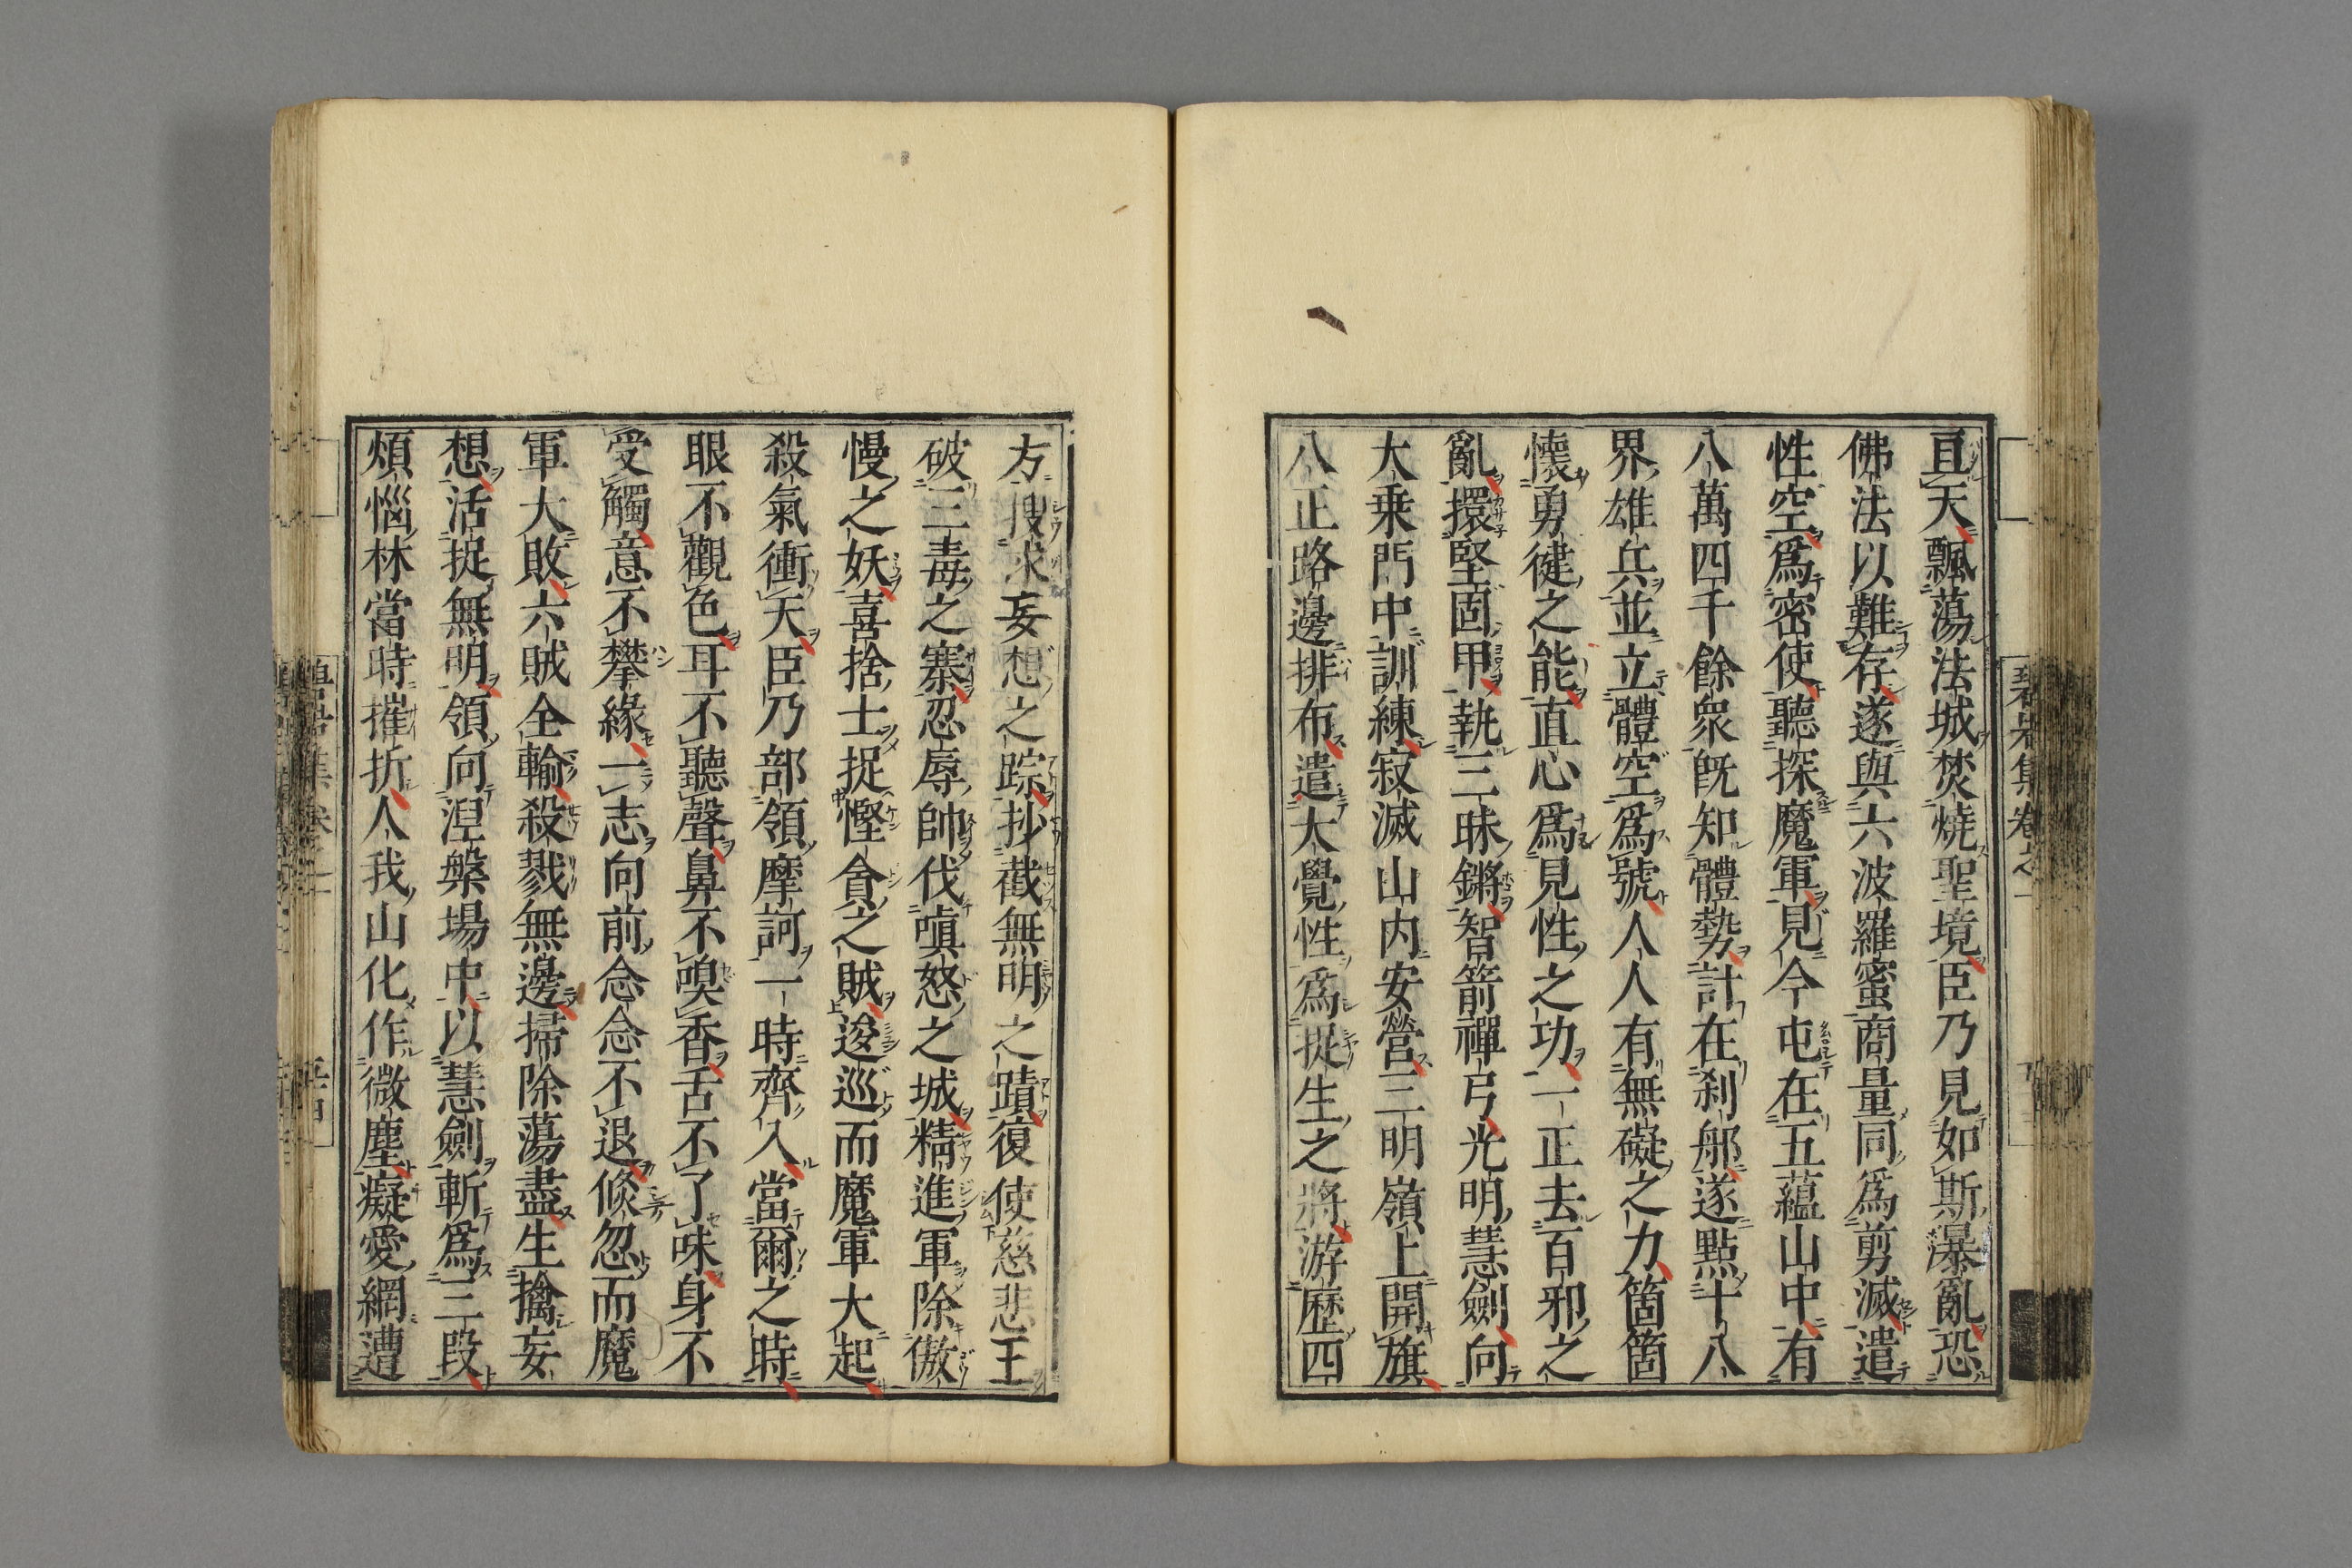 亘天飄蕩法城焚燒聖境臣乃見如斯瀑亂恐
佛法以難存遂與六波羅蜜商量同爲剪滅遣
性空爲密使聽探魔軍見今屯在五蘊山中有
八萬四千餘衆旣知體勢計在刹那遂點十八
界雄兵並立體空爲號人人有無礙之力箇箇
懷勇健之能直心爲見性之功一正去百邪之
亂擐堅固甲執三昧鏘智箭禪弓光明慧劍向
大乗門中訓練寂滅山内安營三明嶺上開旗
八正路邊排布遣大覺性爲捉生之將游歷四
方搜求妄想之踪抄截無明之蹟復使慈悲王
破三毒之寨忍辱帥伐嗔怒之城精進軍除傲
慢之妖喜捨士捉慳貪之賊逡巡而魔軍大起
殺氣衝天臣乃部領摩訶一時齊入當爾之時
眼不觀色耳不聽聲鼻不嗅香舌不了味身不
受觸意不攀緣一志向前念念不退倏忽而魔
軍大敗六賊全輸殺戮無邊掃除蕩盡生擒妄
想活捉無明領向涅槃場中以慧劍斬爲三段
煩惱林當時摧折人我山化作微塵癡愛網遭